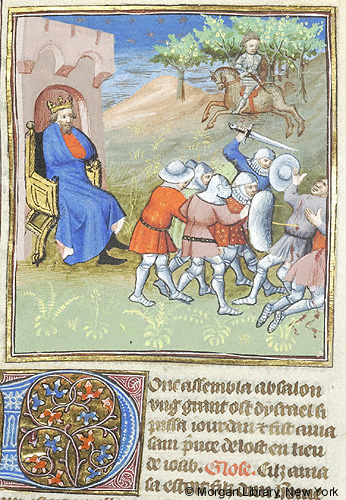 Donc assembla absalon
ung grant ost dysrael &
passa iourdain & fist ama
sam prince de lost en lieu
de ioab. Glose. Cilz ama
© Morgan Library, New York